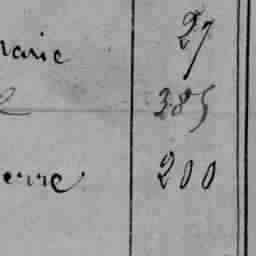 marie 27
e 385
erre 200